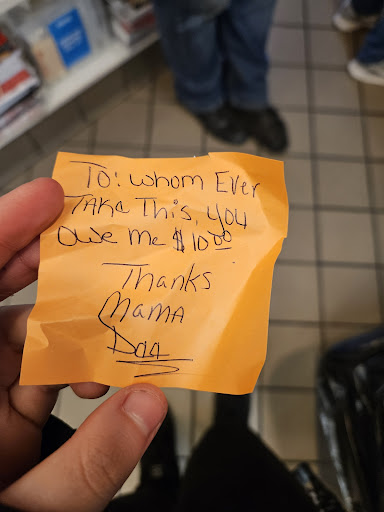 To: whom Ever
TAKe This, you
owe me $10.00
Thanks
MamA